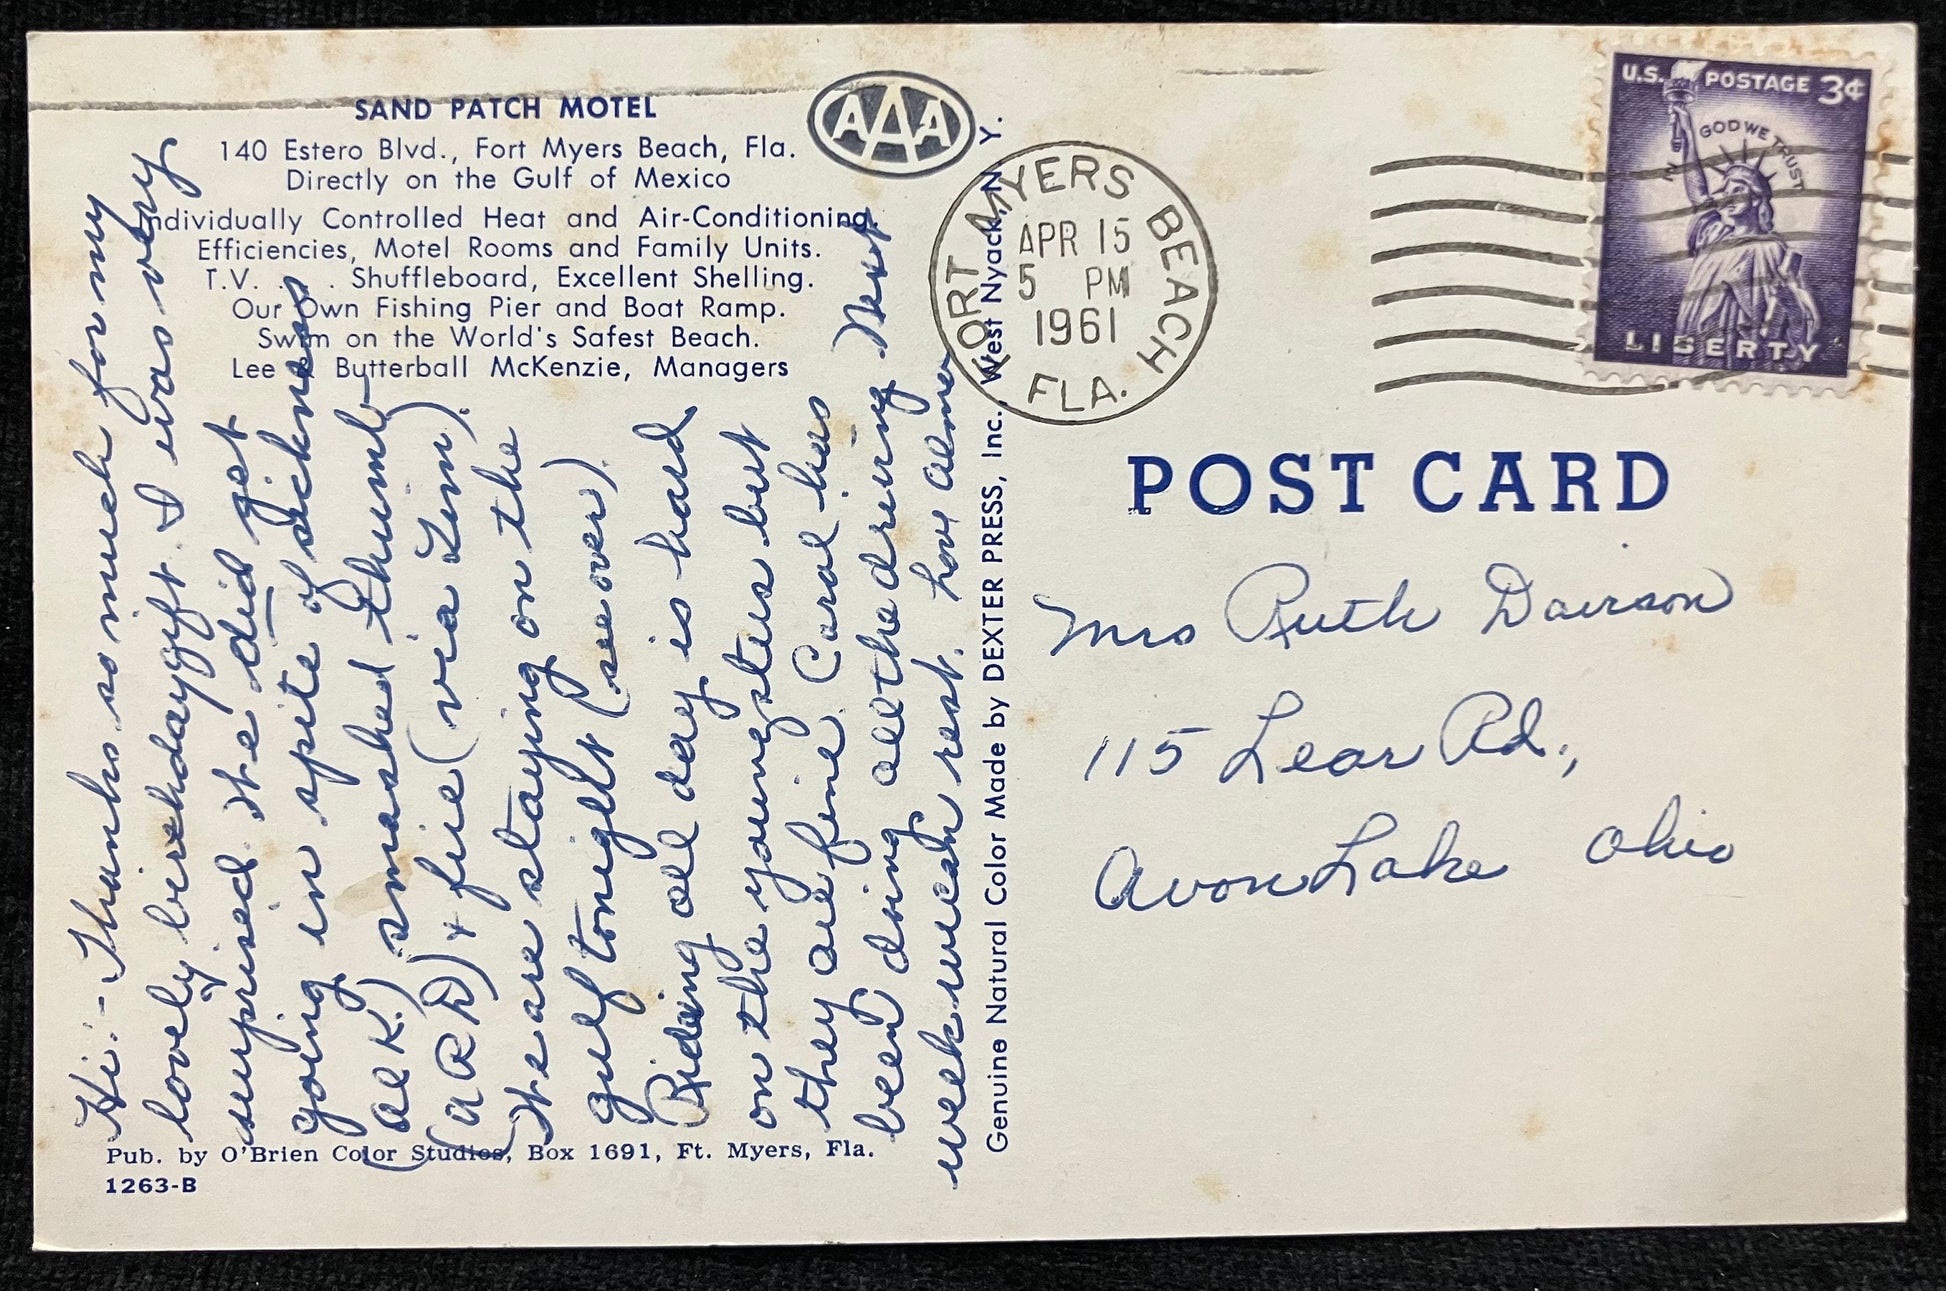 SAND PATCH MOTEL
140 Estero Blvd., Fort Myers Beach, Fla.
Directly on the Gulf of Mexico
Individually Controlled Heat and Air-Conditioning.
Efficiencies, Motel Rooms and Family Units.
T.V. . . . Shuffleboard, Excellent Shelling.
Our Own Fishing Pier and Boat Ramp.
Swim on the World's Safest Beach.
Lee & Butterball McKenzie, Managers
AAA
Hi - Thanks so much for my
lovely birthday gift. I was very
surprised. We did get
going in spite of sickness
(al K.) smashed thumb
(a R D) + fire (via Jim).
We are staying on the
gulf tonight (see over).
Riding all day is hard
on the youngsters but
they are fine. Carol has
been doing all the driving. Next
week we can rest.
Pub. by O'Brien Color Studios, Box 1691, Ft. Myers, Fla.
1263-B
Genuine Natural Color Made by DEXTER PRESS, Inc., West Nyack, N. Y.
FORT MYERS BEACH
APR 15
5 PM
1961
FLA.
U.S. POSTAGE 3¢
IN GOD WE TRUST
LIBERTY
POST CARD
Mrs Ruth Dawson
115 Lear Rd.,
Avon Lake Ohio